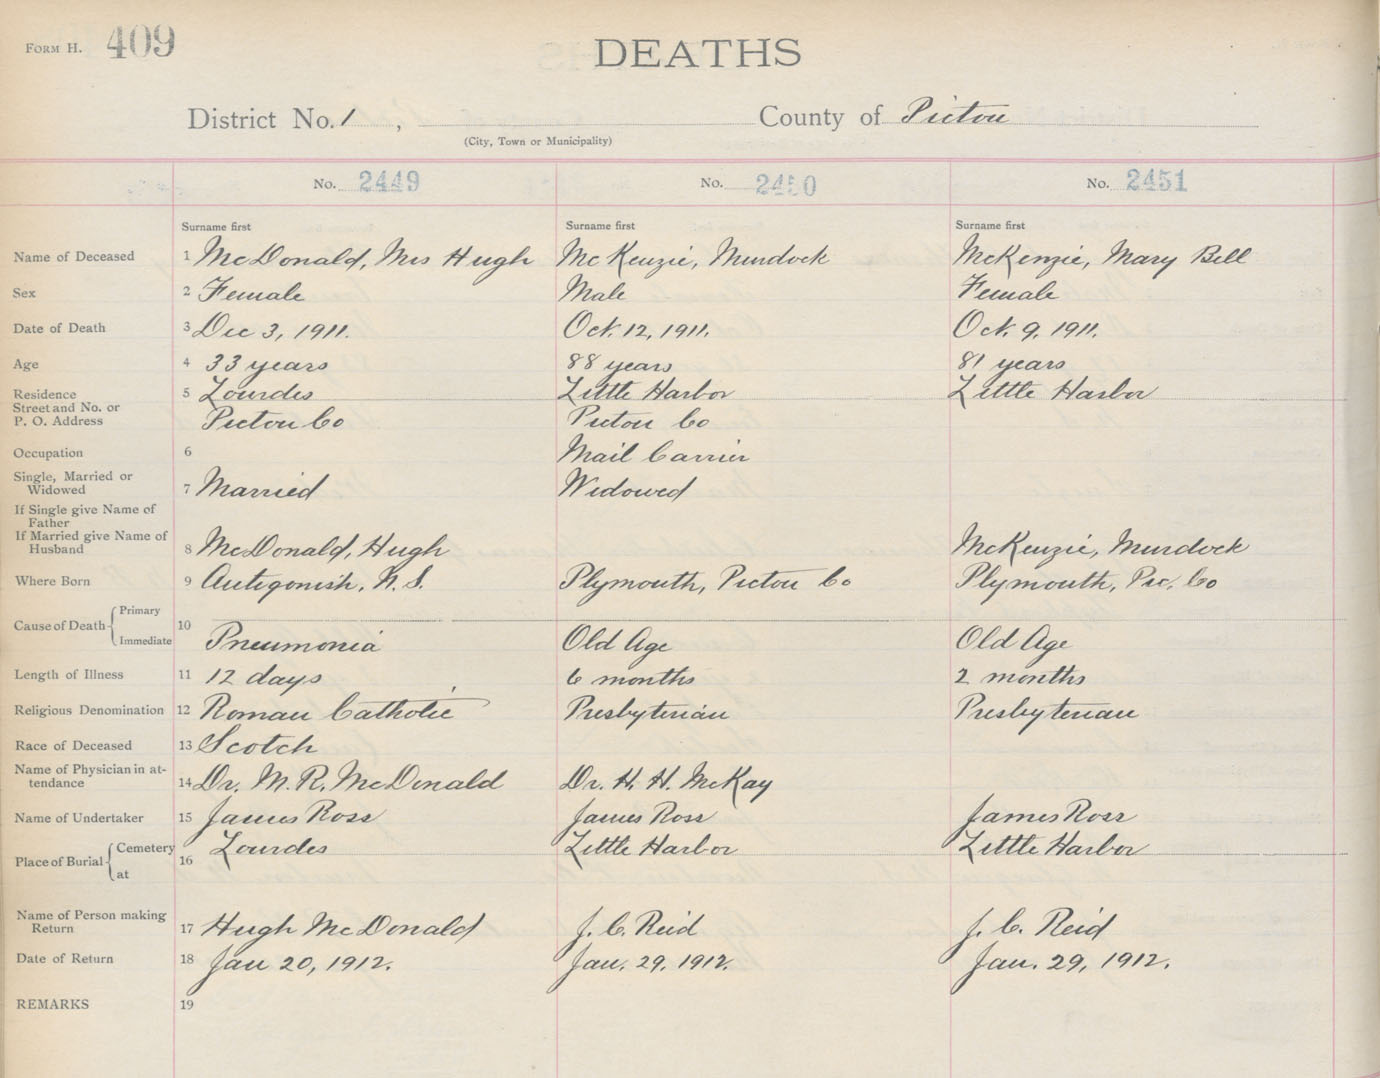 FORM H. 409
DEATHS
District No. 1 , County of Pictou
(City, Town or Municipality)
No. 2449 No. 2450 No. 2451
Surname first Surname first Surname first
Name of Deceased 1 McDonald, Mrs Hugh McKenzie, Murdock McKenzie, Mary Bell
Sex 2 Female Male Female
Date of Death 3 Dec 3, 1911. Oct. 12, 1911. Oct. 9, 1911.
Age 4 33 years 88 years 81 years
Residence 5 Lourdes Little Harbor Little Harbor
Street and No. or
P. O. Address Pictou Co Pictou Co
Occupation 6 Mail Carrier
Single, Married or
Widowed 7 Married Widowed
If Single give Name of
Father
If Married give Name of
Husband 8 McDonald, Hugh McKenzie, Murdock
Where Born 9 Antigonish, N.S. Plymouth, Pictou Co Plymouth, Pic. Co
Primary
Cause of Death 10
Immediate Pneumonia Old Age Old Age
Length of Illness 11 12 days 6 months 2 months
Religious Denomination 12 Roman Catholic Presbyterian Presbyterian
Race of Deceased 13 Scotch
Name of Physician in at-
tendance 14 Dr. M. R. McDonald Dr. H. H. McKay
Name of Undertaker 15 James Ross James Ross James Ross
Cemetery Lourdes Little Harbor Little Harbor
Place of Burial 16
at
Name of Person making
Return 17 Hugh McDonald J. C. Reid J. C. Reid
Date of Return 18 Jan 20, 1912. Jan. 29, 1912. Jan. 29, 1912.
REMARKS 19